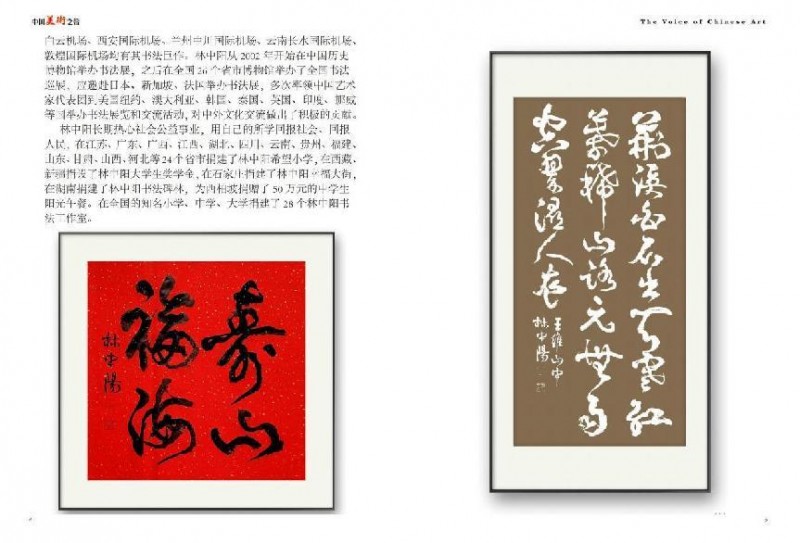 中国美術之音
The Voice of Chinese Art
白云机场、西安国际机场、兰州中川国际机场、云南长水国际机场、
敦煌国际机场均有其书法巨作。林中阳从 2002 年开始在中国历史
博物馆举办书法展,之后在全国 26 个省市博物馆举办了全国书法
巡展,应邀赴日本、新加坡、法国举办书法展,多次率领中国艺术
家代表团到美国纽约、澳大利亚、韩国、泰国、英国、印度、挪威
等国举办书法展览和交流活动,对中外文化交流做出了积极的贡献。
林中阳长期热心社会公益事业,用自己的所学回报社会、回报
人民,在江苏、广东、广西、江西、湖北、四川、云南、贵州、福建、
山东、甘肃、山西、河北等 24 个省市捐建了林中阳希望小学,在西藏、
新疆捐设了林中阳大学生奖学金,在石家庄捐建了林中阳幸福大街,
在湖南捐建了林中阳书法碑林,为西柏坡捐赠了 50 万元的中学生
阳光午餐。在全国的知名小学、中学、大学捐建了 28 个林中阳书
法工作室。
壽山
福海
林中陽
荊溪白石出天寒紅
葉稀山路元無雨
空翠濕人衣
王維山中
林中陽